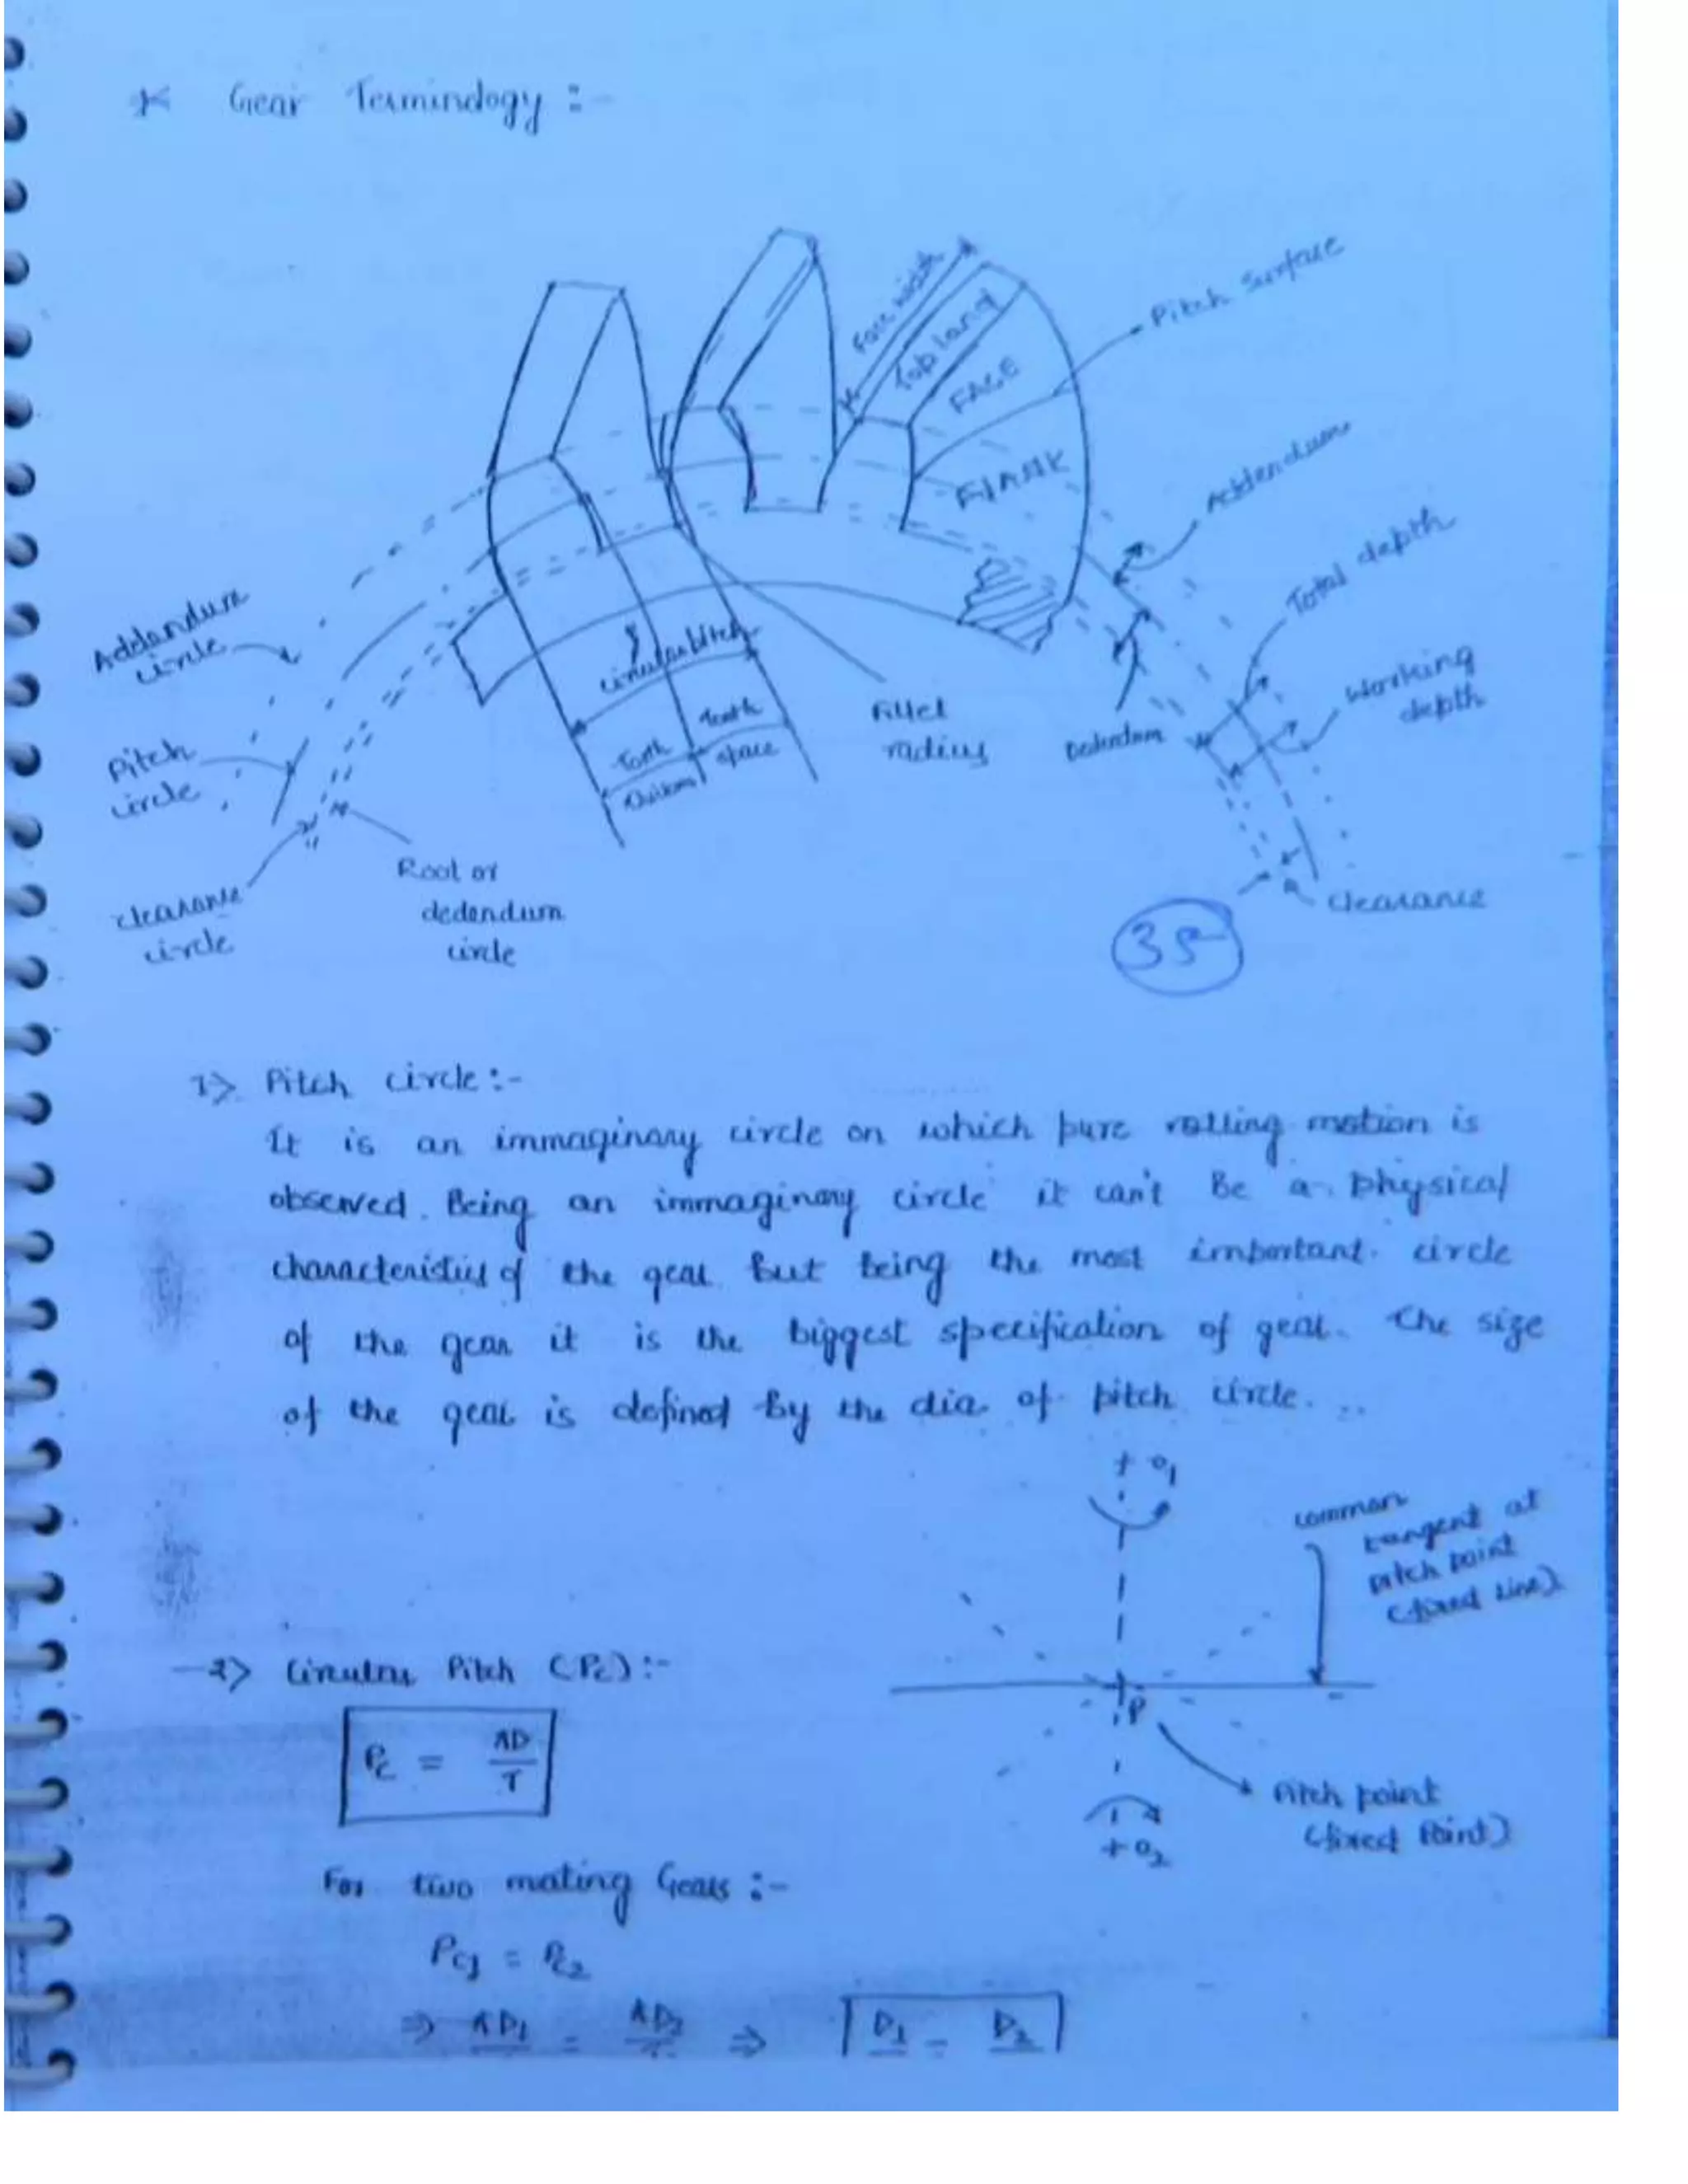 * Gear Terminology :-
Face width
Top land
FACE
FLANK
Pitch Surface
Addendum
Total depth
Working
depth
Addendum
circle
Pitch
circle
clearance
circle
Root or
dedendum
circle
circular pitch
Tooth
space
Tooth
Fillet
radius
Dedendum
clearance
35
1> Pitch circle :-
It is an immaginary circle on which pure rolling motion is
observed. Being an immaginary circle it can't Be a physical
characteristics of the gear but being the most important circle
of the gear it is the biggest specification of gear. The size
of the gear is defined by the dia of pitch circle.
+ O1
common
tangent at
pitch point
(fixed Line)
2> Circular Pitch (Pc) :-
P
Pc = πD / T
Pitch point
(fixed Point)
+ O2
For two mating Gears :-
Pc1 = Pc2
⇒ πD1 = πD2 ⇒ D1 = D2